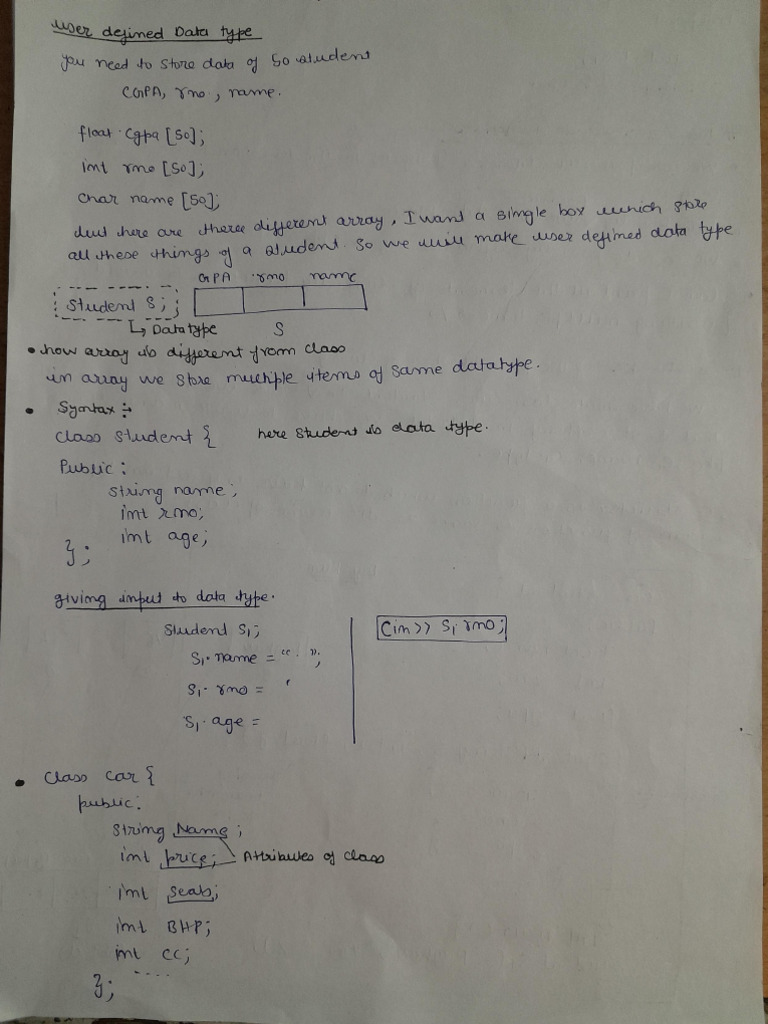 User defined Data type
you need to store data of 50 student
CGPA, rno, name.
float cgpa [50];
int rno [50];
char name [50];
but here are there different array, I want a single box which store
all these things of a student. So we will make user defined data type
GPA rno name
Student S;
↳ Datatype S
• how array is different from class
in array we store multiple items of same datatype.
• Syntax :-
class student { here student is data type.
Public :
string name;
int rno;
int age;
};
giving input to data type.
Student S1;
S1.name = " ";
S1.rno =
S1.age =
Cin>> S1.rno;
• Class Car {
public:
String Name;
int price; Attributes of class
int seats;
int BHP;
int CC;
....
};